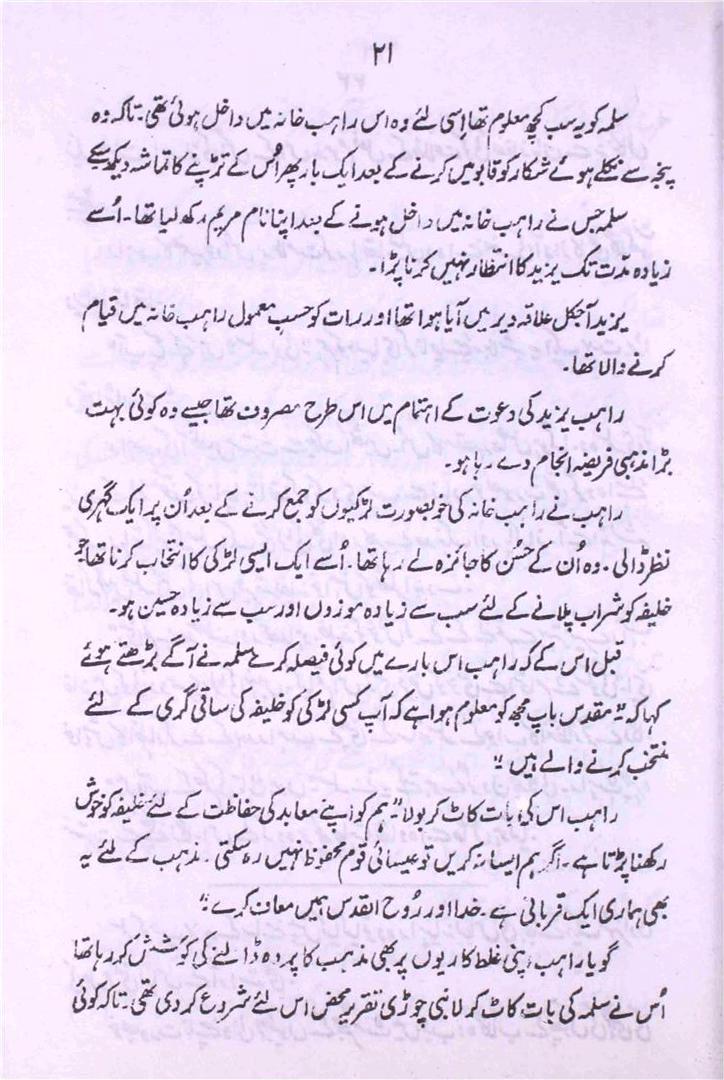 ۲۱
سلمہ کو یہ سب کچھ معلوم تھا اِسی لئے وہ اس راہب خانہ میں داخل ہوئی تھی۔ تاکہ وہ
پنجہ سے نکلے ہوئے شکار کو قابو میں کرنے کے بعد ایک بار پھر اُس کے تڑپنے کا تماشہ دیکھ سکے
سلمہ جس نے راہب خانہ میں داخل ہونے کے بعد اپنا نام مریم رکھ لیا تھا۔ اُسے
زیادہ مدّت تک یزید کا انتظار نہیں کرنا پڑا۔
یزید آجکل علاقہ دیر میں آیا ہوا تھا اور رات کو حسبِ معمول راہب خانہ میں قیام
کرنے والا تھا۔
راہب یزید کی دعوت کے اہتمام میں اس طرح مصروف تھا جیسے وہ کوئی بہت
بڑا مذہبی فریضہ انجام دے رہا ہو۔
راہب نے راہب خانہ کی خوبصورت لڑکیوں کو جمع کرنے کے بعد اُن پر ایک گہری
نظر ڈالی۔ وہ اُن کے حُسن کا جائزہ لے رہا تھا۔ اُسے ایک ایسی لڑکی کا انتخاب کرنا تھا جو
خلیفہ کو شراب پلانے کے لئے سب سے زیادہ موزوں اور سب سے زیادہ حسین ہو۔
قبل اس کے کہ راہب اس بارے میں کوئی فیصلہ کرے سلمہ نے آگے بڑھتے ہوئے
کہا کہ "مقدس باپ مجھ کو معلوم ہوا ہے کہ آپ کسی لڑکی کو خلیفہ کی ساقی گری کے لئے
منتخب کرنے والے ہیں"
راہب اس کی بات کاٹ کر بولا "ہم کو اپنے معابد کی حفاظت کے لئے خلیفہ کو خوش
رکھنا پڑتا ہے۔ اگر ہم ایسا نہ کریں تو عیسائی قوم محفوظ نہیں رہ سکتی۔ مذہب کے لئے یہ
بھی ہماری ایک قربانی ہے۔ خدا اور رُوح القدس ہمیں معاف کرے"
گویا راہب اپنی غلط کاریوں پر بھی مذہب کا پردہ ڈالنے کی کوشش کر رہا تھا
اُس نے سلمہ کی بات کاٹ کر لانبی چوڑی تقریر محض اس لئے شروع کر دی تھی۔ تاکہ کوئی